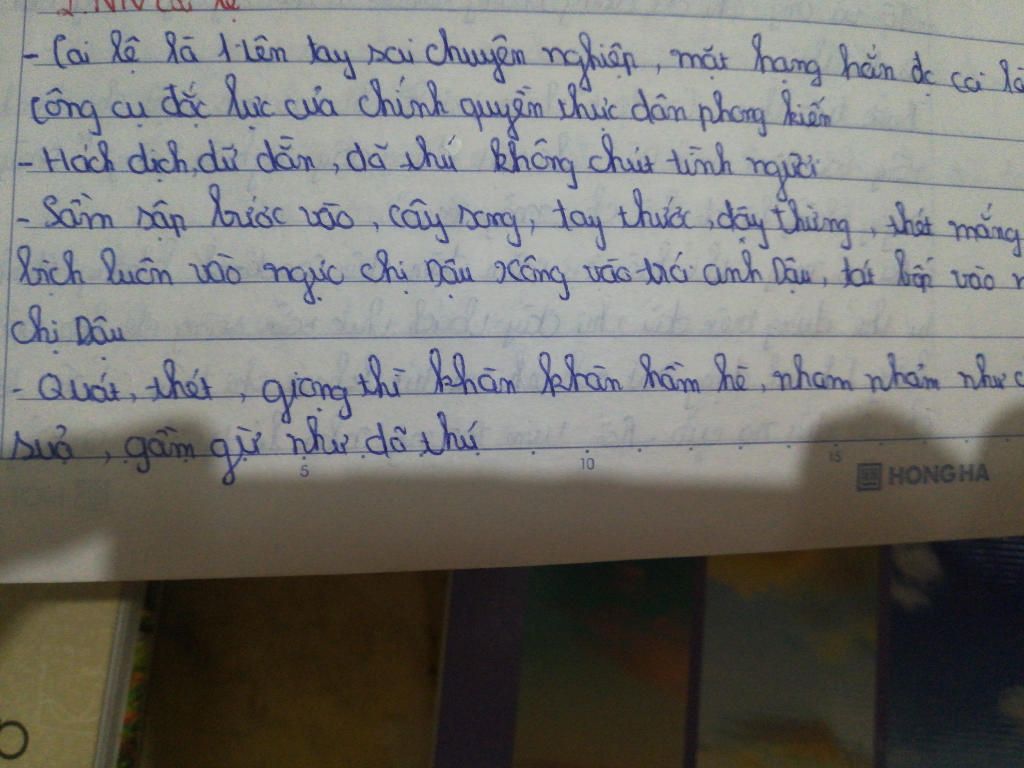 2. NV cai lệ
- Cai lệ là 1 tên tay sai chuyên nghiệp, mạt hạng hắn đc coi là
công cụ đắc lực của chính quyền thực dân phong kiến
- Hách dịch, dữ dằn, dã thú không chút tình người
- Sầm sập bước vào, cây song, tay thước, dây thừng, thét mắng
bịch luôn vào ngực chị Dậu xông vào trói anh Dậu, tát bốp vào
chị Dậu
- Quát, thét, giọng thì khàn khàn hầm hè, nham nhảm như
sủa, gầm gừ như dã thú
5 10 15
HONG HA